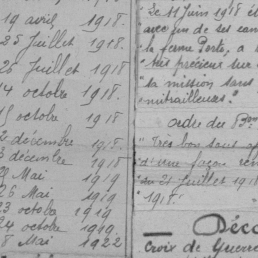 19 avril 1918.
25 Juillet 1918.
26 Juillet 1918.
14 octobre 1918.
15 octobre 1918.
2 décembre 1918.
3 décembre 1918
Mai 1919
26 Mai 1919
23 octobre 1919.
24 octobre 1919.
8 Mai 1922
"Le 11 Juin 1918
avec un de ses
la ferme Porte, a
précieux sur
sa mission sans
mitrailleuses."
ordre du 8eme
"Très bon
d'une façon
du 21 Juillet 1918
1918."
Déco
Croix de Guerre